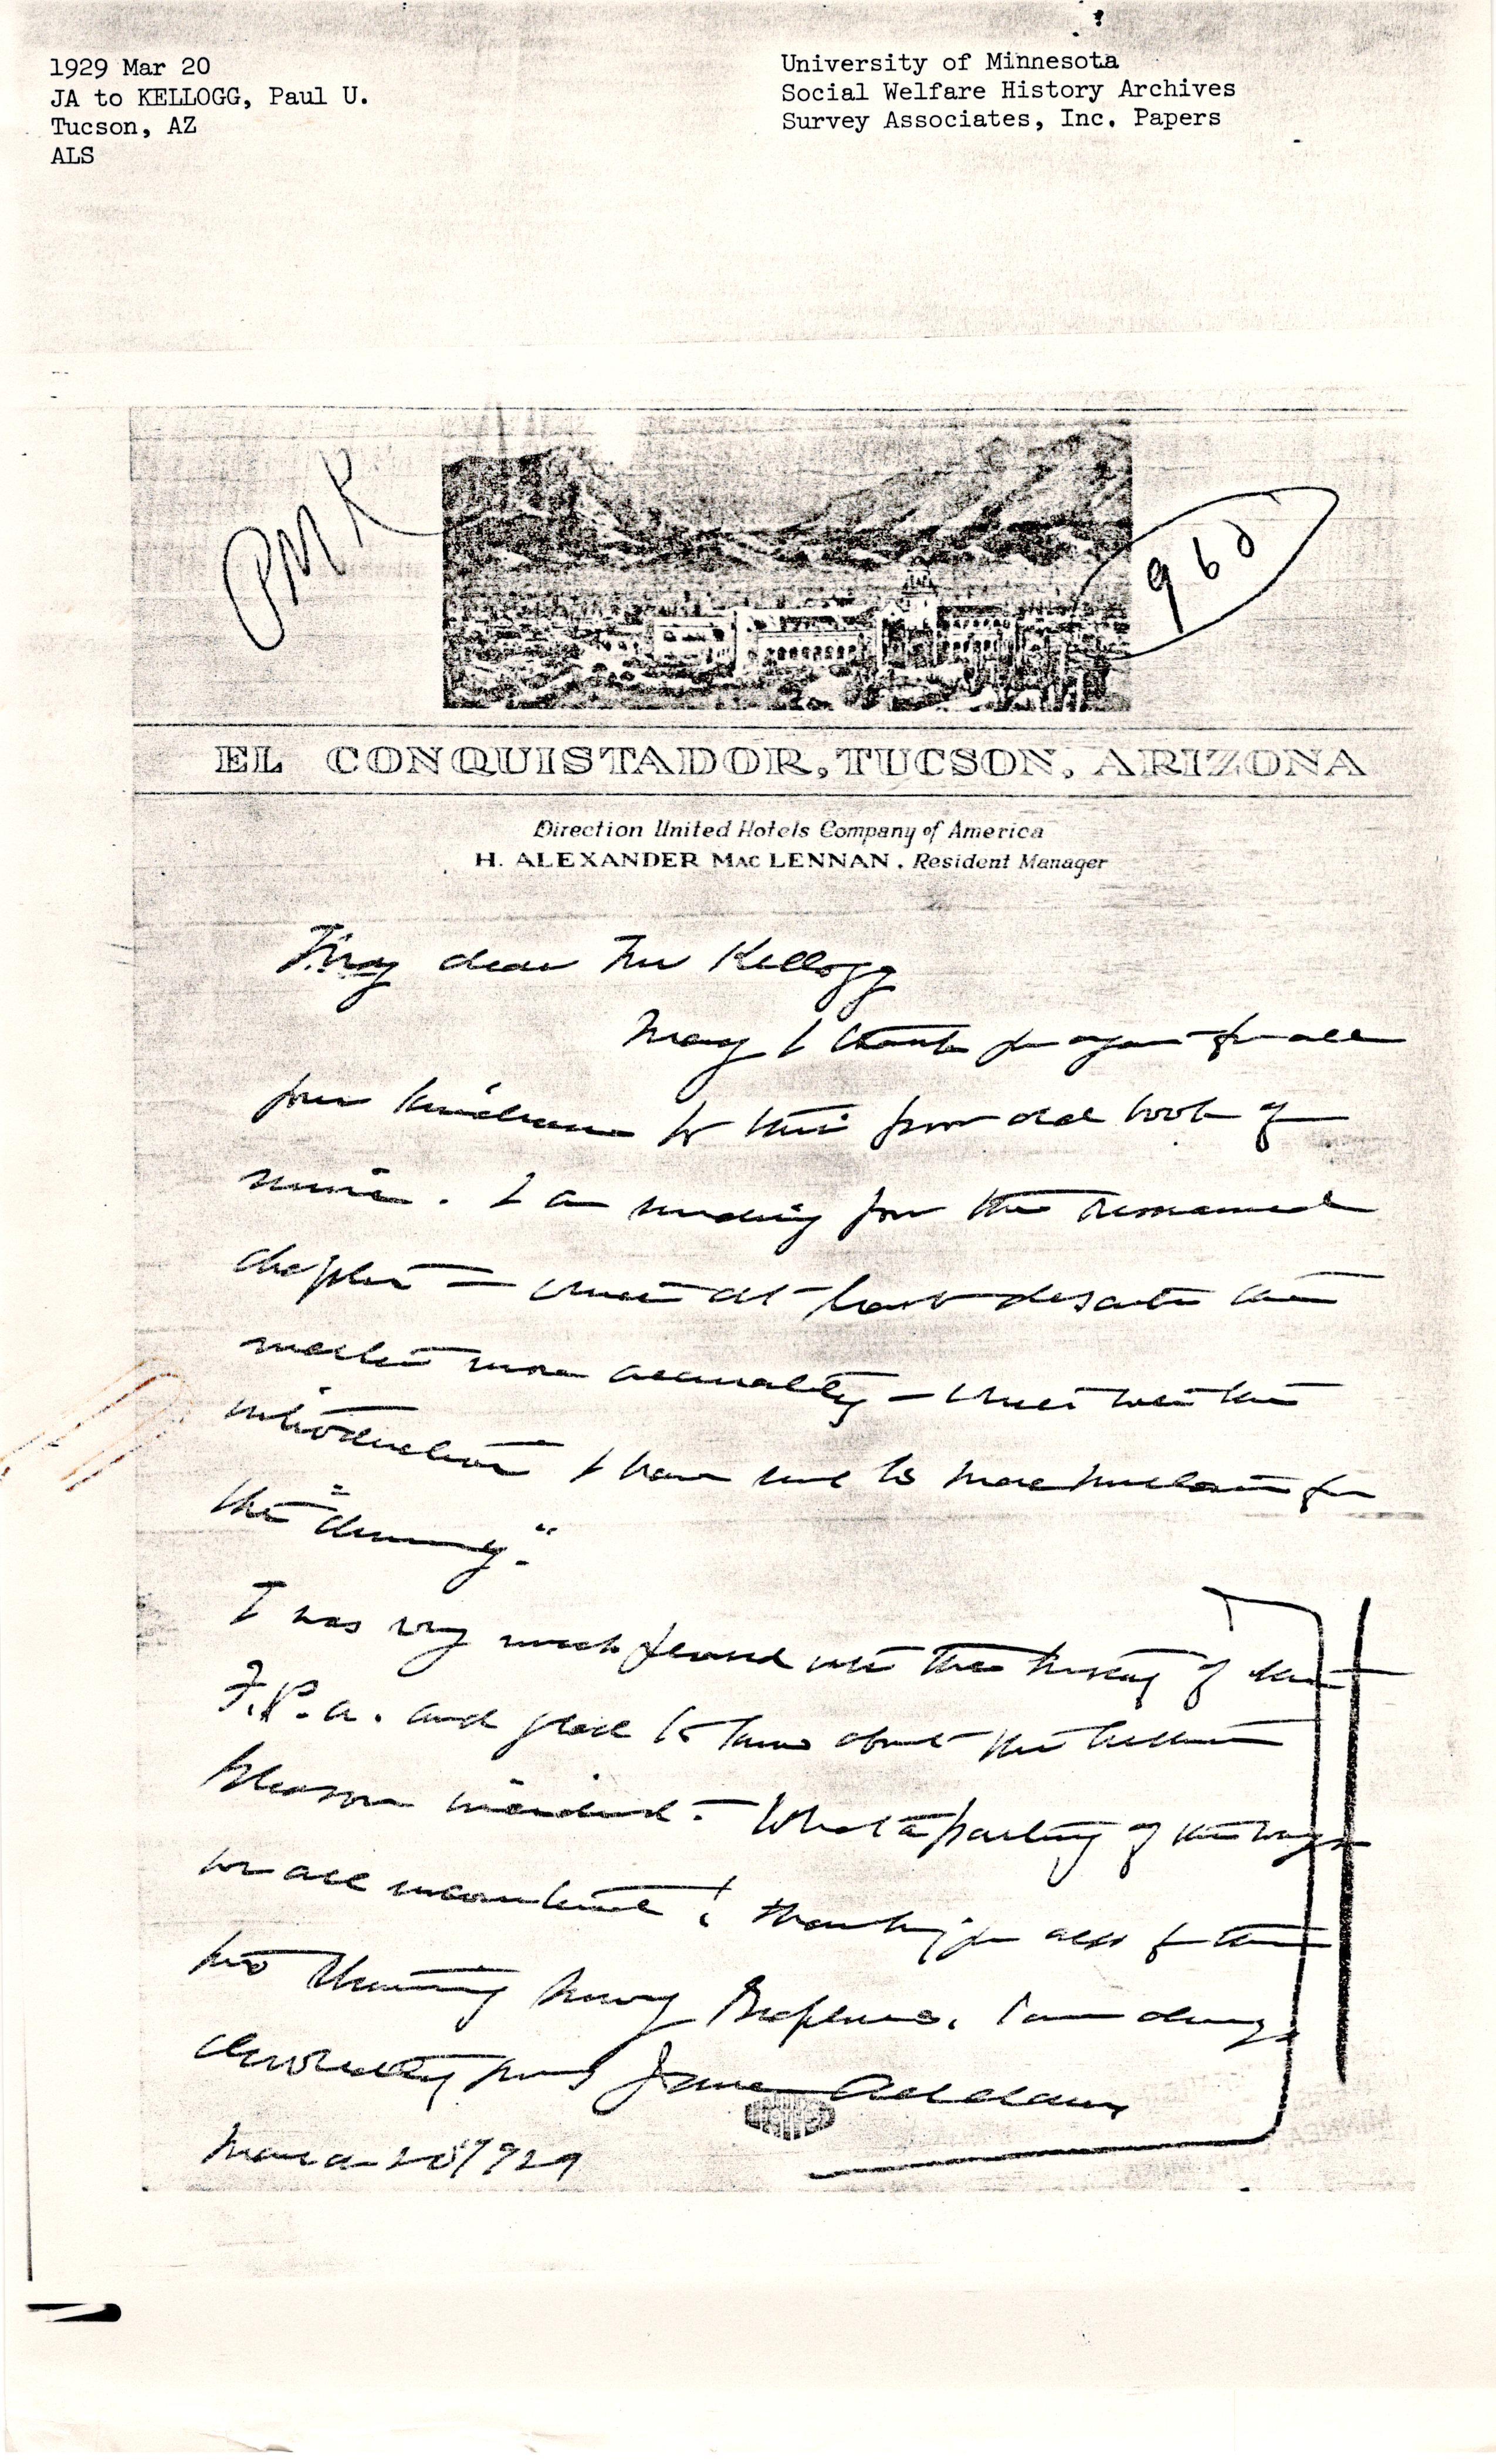 1929 Mar 20
JA to KELLOGG, Paul U.
Tucson, AZ
ALS
University of Minnesota
Social Welfare History Archives
Survey Associates, Inc. Papers
PMK
96d
EL CONQUISTADOR, TUCSON, ARIZONA
Direction United Hotels Company of America
H. ALEXANDER MAC LENNAN, Resident Manager
My dear Mr Kellogg
May I thank you again for all
your kindness to this poor old book of
mine. I am sending you the renamed
chapter — which at least describes the
more accurately — which with the
introduction I have sent to Macmillan for
the "dummy."
I was very much pleased with the of the
F.P.A. and glad to know about the
incident. What a parting of the ways
we all ! Thanking you also for the
two Survey Graphics, I am always
devotedly yours Jane Addams
March 20 1929